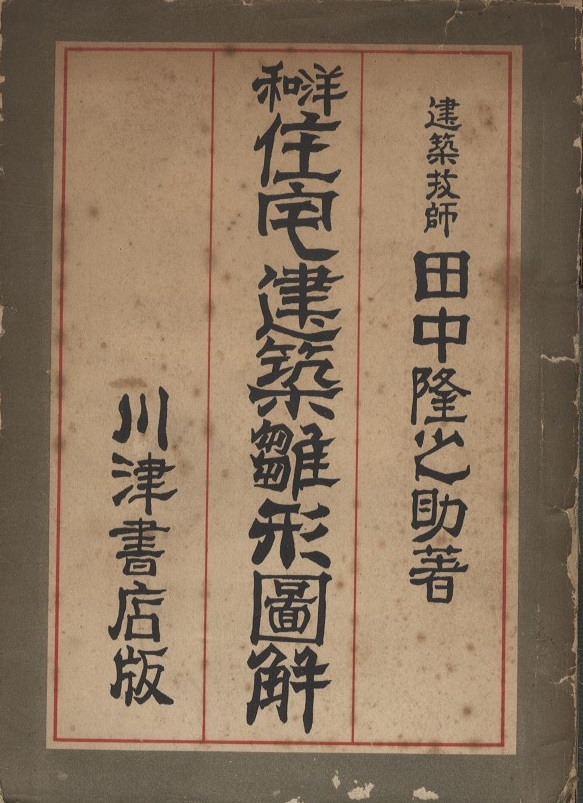 建築技師 田中隆之助著
和洋住宅建築雛形圖解
川津書店版